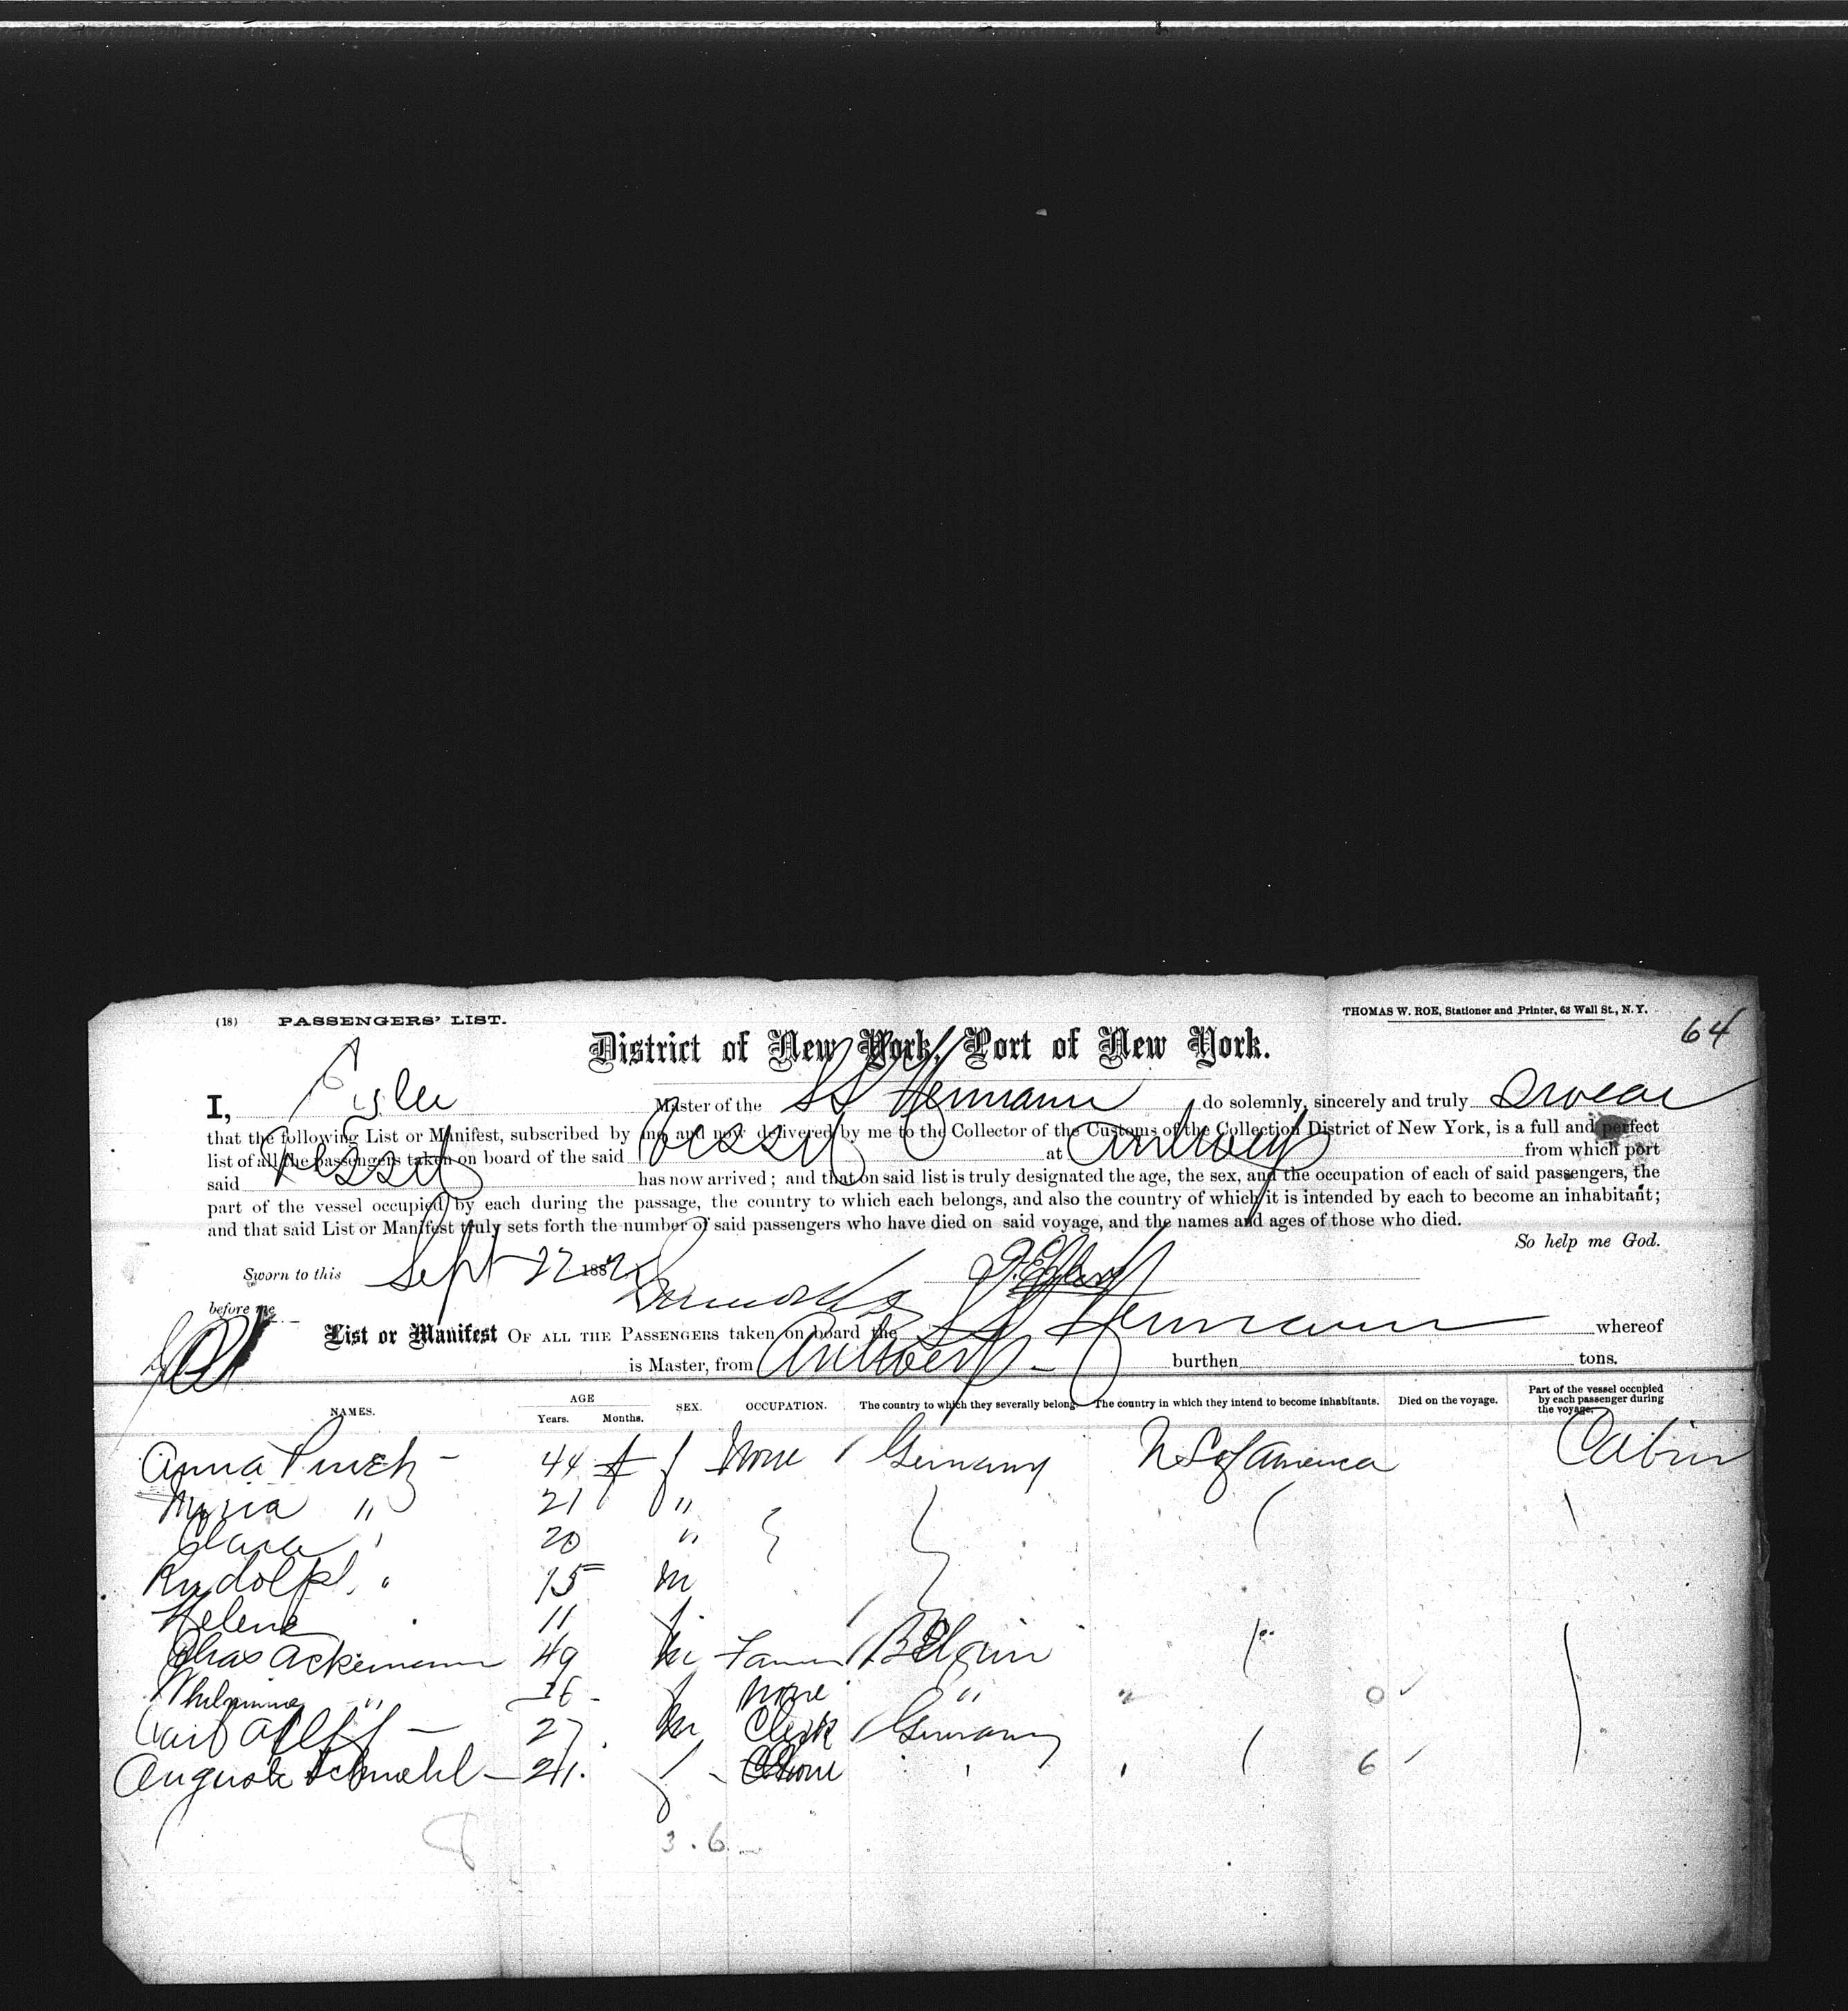 (18) PASSENGERS' LIST.
THOMAS W. ROE, Stationer and Printer, 63 Wall St., N.Y.
64
District of New York, Port of New York.
I, Master of the SS Hermann do solemnly, sincerely and truly Swear
that the following List or Manifest, subscribed by me and now delivered by me to the Collector of the Customs of the Collection District of New York, is a full and perfect
list of all the passengers taken on board of the said Vessel at Antwerp from which port
said Vessel has now arrived; and that on said list is truly designated the age, the sex, and the occupation of each of said passengers, the
part of the vessel occupied by each during the passage, the country to which each belongs, and also the country of which it is intended by each to become an inhabitant;
and that said List or Manifest truly sets forth the number of said passengers who have died on said voyage, and the names and ages of those who died.
So help me God.
Sworn to this Sept 22 188
before me
List or Manifest OF ALL THE PASSENGERS taken on board the SS Hermann whereof
is Master, from Antwerp burthen tons.
NAMES. AGE Years. Months. SEX. OCCUPATION. The country to which they severally belong The country in which they intend to become inhabitants. Died on the voyage. Part of the vessel occupied by each passenger during the voyage.
Anna 44 f None Germany U S of America Cabin
Maria " 21 "
Clara " 20 "
Rudolph " 15 m
Helene 11
Chas Ackermann 49 m Farmer Belgium
" None " 0
Carl 27 m Clerk Germany
Auguste 6
3.6